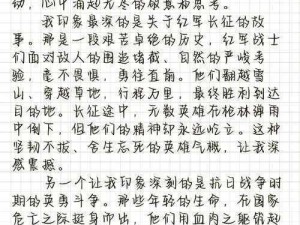 动,心中涌起无尽的敬意和思考。
我印象最深的是关于红军长征的故
事。那是一段艰苦卓绝的历史,红军战士
们面对敌人的围追堵截、自然的严峻考
验,毫不畏惧,勇往直前。他们翻越雪
山、穿越草地,行程万里,最终胜利到达
目的地。长征途中,无数英雄在枪林弹雨
中倒下,但他们的精神却永远屹立。这种
坚韧不拔、舍生忘死的英雄气概,让我深
感震撼。
另一个让我印象深刻的是抗日战争时
期的英勇斗争。那些年轻的生命,在国家
危亡之际挺身而出,他们用血肉之躯筑起